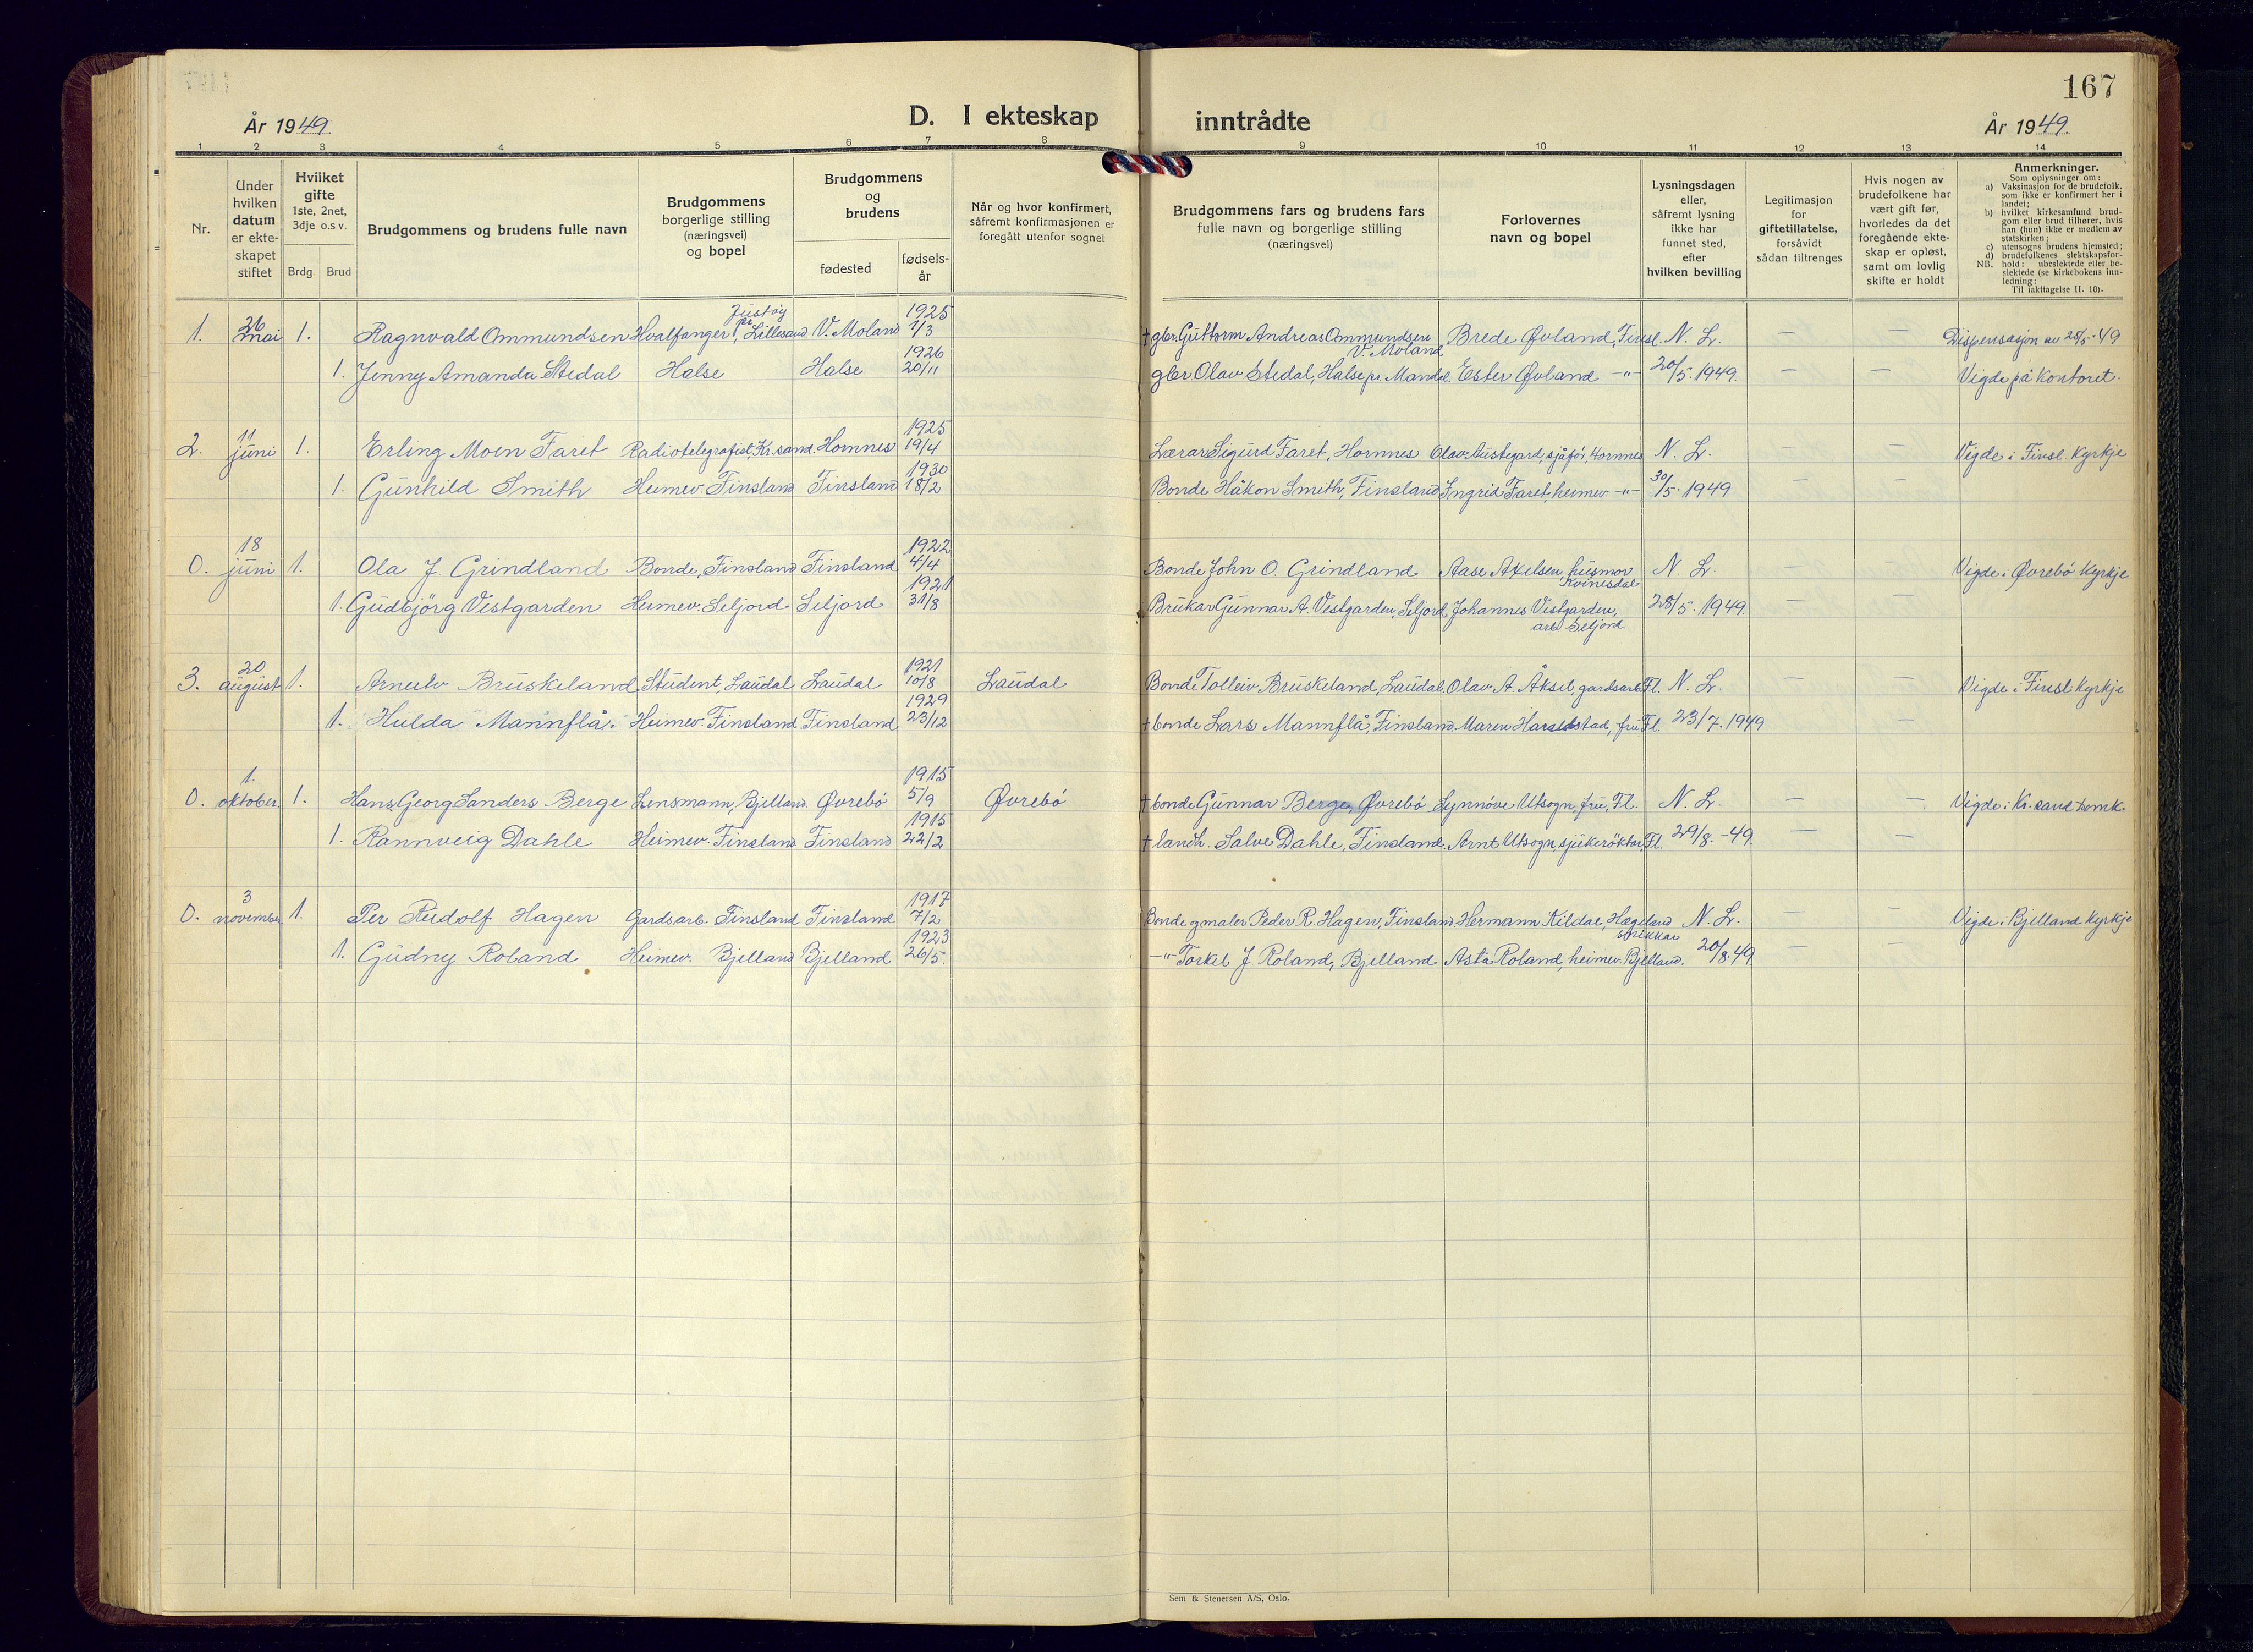 167
År 1949.
D. I ekteskap inntrådte
År 1949.
1 2 3 4 5 6 7 8 9 10 11 12 13 14
Nr.
Under hvilken datum er ekte-skapet stiftet
Hvilket gifte 1ste, 2net, 3dje o.s v.
Brdg. Brud
Brudgommens og brudens fulle navn
Brudgommens borgerlige stilling (næringsvei) og bopel
Brudgommens og brudens
fødested
fødsels-år
Når og hvor konfirmert, såfremt konfirmasjonen er foregått utenfor sognet
Brudgommens fars og brudens fars fulle navn og borgerlige stilling (næringsvei)
Forlovernes navn og bopel
Lysningsdagen eller, såfremt lysning ikke har funnet sted, efter hvilken bevilling
Legitimasjon for giftetillatelse, forsåvidt sådan tiltrenges
Hvis nogen av brudefolkene har vært gift før, hvorledes da det foregående ekte-skap er opløst, samt om lovlig skifte er holdt
Anmerkninger.
Som oplysninger om:
a) Vaksinasjon for de brudefolk, som ikke er konfirmert her i landet;
b) hvilket kirkesamfund brud-gom eller brud tilhører, hvis han (hun) ikke er medlem av statskirken;
c) utensogns brudens hjemsted;
d) brudefolkenes slektskapsfor-hold: ubeslektede eller be-slektede (se kirkebokens inn-ledning:
NB. Til iakttagelse II. 10).
1. 26 mai 1. Ragnvald Ommundsen Hvalfanger, Justøy pr. Lillesand V. Moland 1925 1/3 † gbr. Guttorm Andreas Ommundsen V. Moland Brede Øvland, Finsl. N. L. — — Dispensasjon av 25/5-49
1. Jenny Amanda Stedal Halse Halse 1926 20/11 gbr Olav Stedal, Halse pr. Mandal. Ester Øvland -"- 20/5.1949. — — Vigde på kontoret.
2. 11 juni 1. Erling Moen Faret Radiotelegrafist, Kr.sand. Hornnes 1925 19/4 Lærar Sigurd Faret, Hornnes Olav Austegard, sjåfør, Hornnes N. L. — — Vigde i Finsl. Kyrkje
1. Gunhild Smith Heimev. Finsland Finsland 1930 18/2 Bonde Håkon Smith, Finsland Ingrid Faret, heimev. -"- 30/5. 1949 — —
0. 18 juni 1. Ola J. Grindland Bonde, Finsland Finsland 1922 4/4 Bonde John O. Grindland Aase Axelsen, husmor Kvinesdal N. L. — — Vigde i Øvrebö Kyrkje
1. Gudbjörg Vestgarden Heimev. Seljord Seljord 1921 31/8 Brukar Gunnar A. Vestgarden, Seljord Johannes Vestgarden, arb. Seljord 28/5. 1949. — —
3. 20 august 1. Arnulv Bruskeland Student, Laudal Laudal 1921 10/8 Laudal Bonde Tolleiv Bruskeland, Laudal Olav A. Åkset, gardsarb. Fl. N. L. — — Vigde i Finsl. Kyrkje
1. Hulda Mannflå. Heimev. Finsland Finsland 1929 23/12 † bonde Lars Mannflå, Finsland. Maren Haraldstad, fru Fl. 23/7. 1949 —
0. 1. oktober. 1. Hans Georg Sanders Berge Lensmann, Bjelland Øvrebö 1915 5/9 Øvrebö † bonde Gunnar Berge, Øvrebö Synnöve Utsogn, fru, Fl. N. L. — — Vigde i Kr.sand domk.
1. Rannveig Dahle Heimev. Finsland Finsland 1915 22/2 † landh. Salve Dahle, Finsland. Arnt Utsogn, sjukeröktar, Fl. 29/8.-49. — —
0. 3 november 1. Per Rudolf Hagen Gardsarb. Finsland Finsland 1917 7/2 Bonde g maler Peder R. Hagen, Finsland Hermann Kildal, Hægeland snikkar N. L. — — Vigde i Bjelland Kyrkje
1. Gudny Roland Heimev. Bjelland Bjelland 1923 26/5. -"- Torkel J. Roland, Bjelland Asta Roland, heimev. Bjelland. 20/8.49. — —
Sem & Stenersen A/S, Oslo.